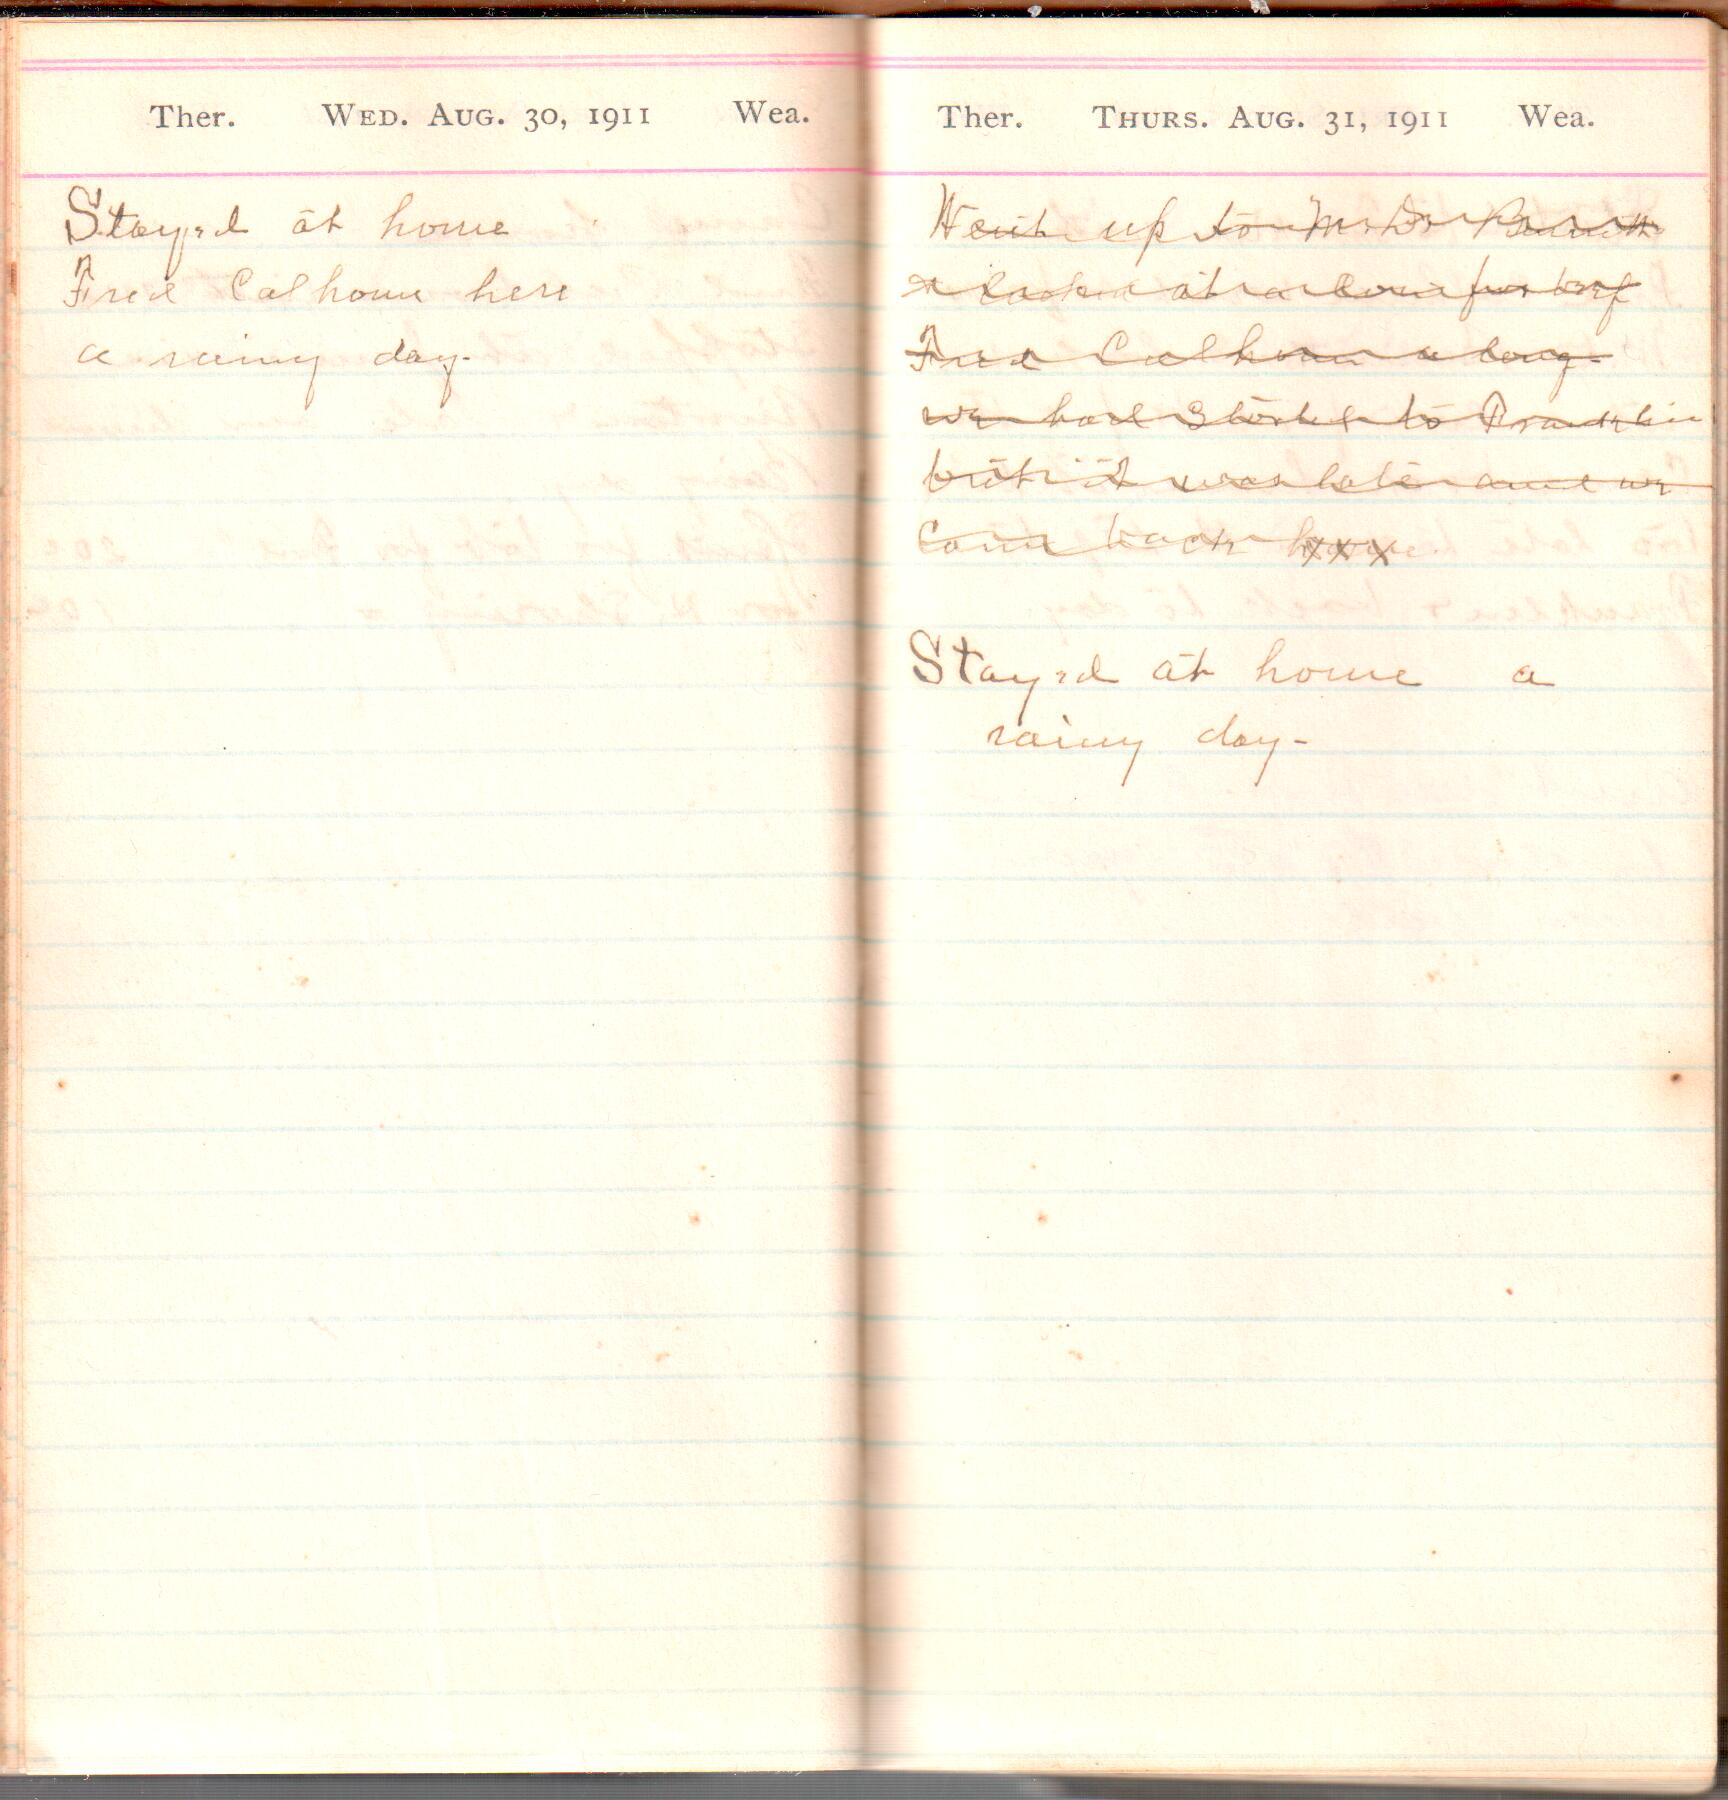 Ther. WED. AUG. 30, 1911 Wea.
Stayed at home
Fred Calhoun here
a rainy day-
Ther. THURS. AUG. 31, 1911 Wea.
Went up to
& looked at a Cow for beef
Fred Calhoun along-
we had started to
but it was late and we
Come back home
Stayed at home a
rainy day-